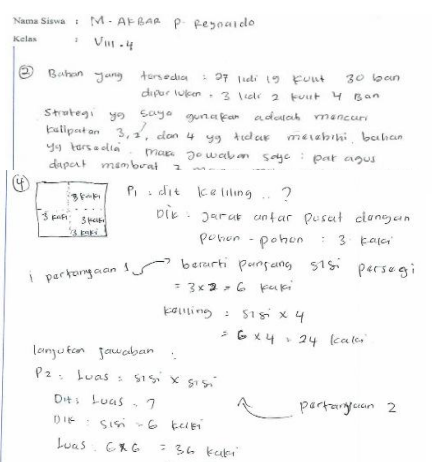 Nama Siswa : M. AKBAR P. Reynaldo
Kelas : VIII.4
② Bahan yang tersedia : 27 lidi 19 kulit 30 ban
diperlukan : 3 lidi 2 kulit 4 Ban
Strategi yg saya gunakan adalah mencari
kelipatan 3, 2, dan 4 yg tidak melebihi bahan
yg tersedia. maka jawaban saya : pak agus
dapat membuat
④
3 kaki
3 kaki 3 kaki
3 kaki
P1 : dit keliling .. ?
Dik : Jarak antar pusat dengan
pohon - pohon : 3 kaki
pertanyaan 1 → berarti panjang sisi persegi
= 3 x 2 = 6 kaki
keliling : sisi x 4
= 6 x 4 = 24 kaki
lanjutan jawaban :
P2 : Luas = sisi x sisi
Dit : Luas .. ?
pertanyaan 2
Dik : sisi = 6 kaki
Luas : 6x6 = 36 kaki